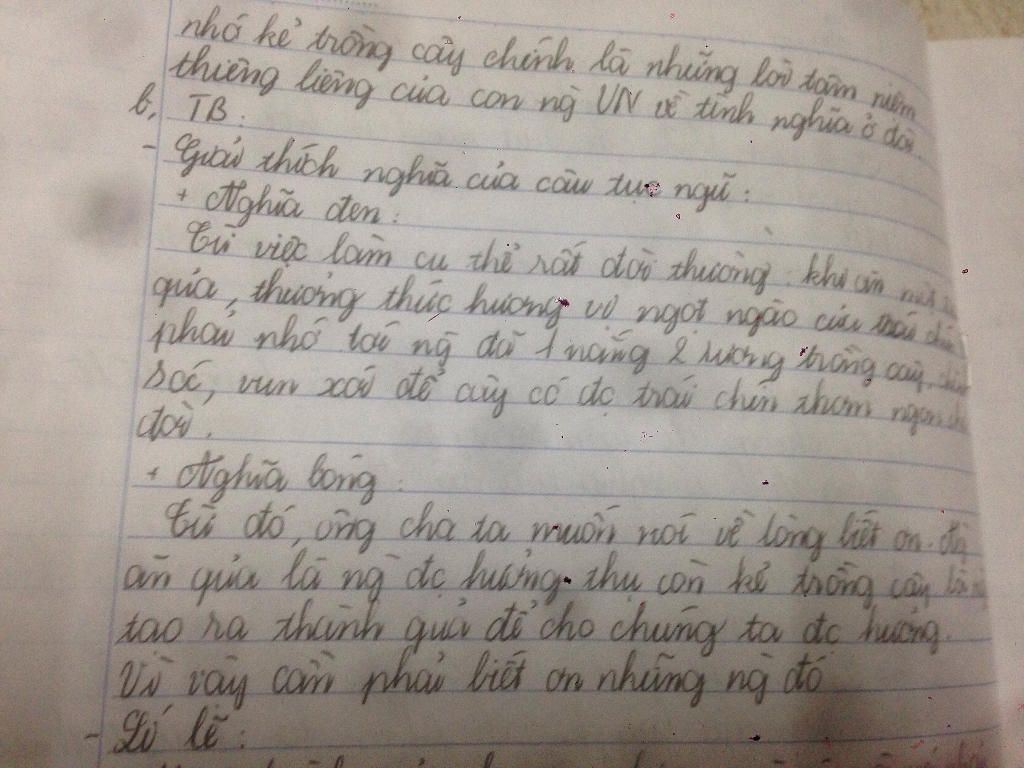 nhớ kẻ trồng cây chính là những lời tâm niệm
thiêng liêng của con ng VN về tình nghĩa ở đời.
b, TB:
- Giải thích nghĩa của câu tục ngữ:
+ Nghĩa đen:
Từ việc làm cụ thể rất đời thường: khi ăn một
quả, thưởng thức hương vị ngọt ngào của trái chín
phải nhớ tới ng đã 1 nắng 2 sương trồng cây, chăm
sóc, vun xới để cây có đc trái chín thơm ngon cho
đời.
+ Nghĩa bóng:
Từ đó, ông cha ta muốn nói về lòng biết ơn.
ăn quả là ng đc hưởng thụ còn kẻ trồng cây là
tạo ra thành quả để cho chúng ta đc hưởng.
Vì vậy cần phải biết ơn những ng đó
- Lí lẽ: